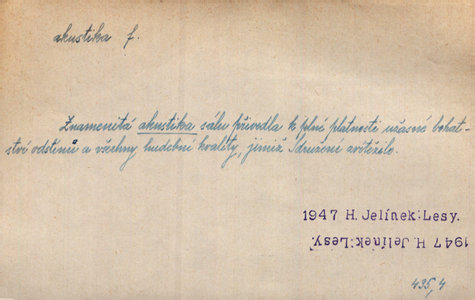 akustika f.
Znamenitá akustika sálu přivedla k plné platnosti užasné bohat-
ství odstínů a všechny hudební kvality, jimiž Sdružení zvítězilo.
1947 H. Jelínek: Lesy.
1947 H. Jelínek: Lesy.
435, 4